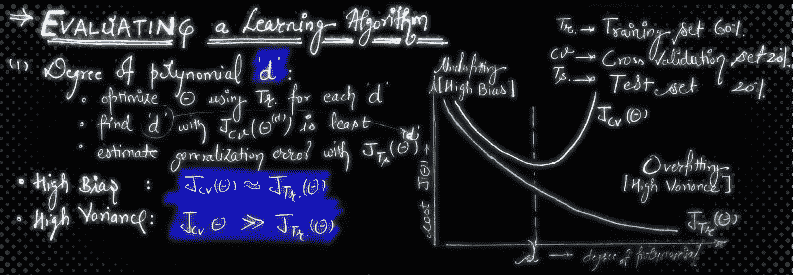 ⇒ EVALUATING a Learning Algorithm
(1) Degree of polynomial 'd' :
• optimize Θ using Tr. for each 'd'
• find 'd' with J_CV(Θ^(d)) is least
• estimate generalization error with J_Ts(Θ^(d))
• High Bias : J_CV(Θ) ≈ J_Tr.(Θ)
• High Variance : J_CV Θ ≫ J_Tr.(Θ)
Tr. → Training set 60%
CV → Cross Validation set 20%
Ts. → Test set 20%
Underfitting
[High Bias]
J_CV(Θ)
Overfitting
[High Variance]
J_Tr(Θ)
cost J(Θ) →
d → degree of polynomial